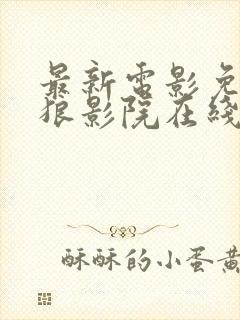 最新电影免
狼影院在线
酥酥的小蛋黄